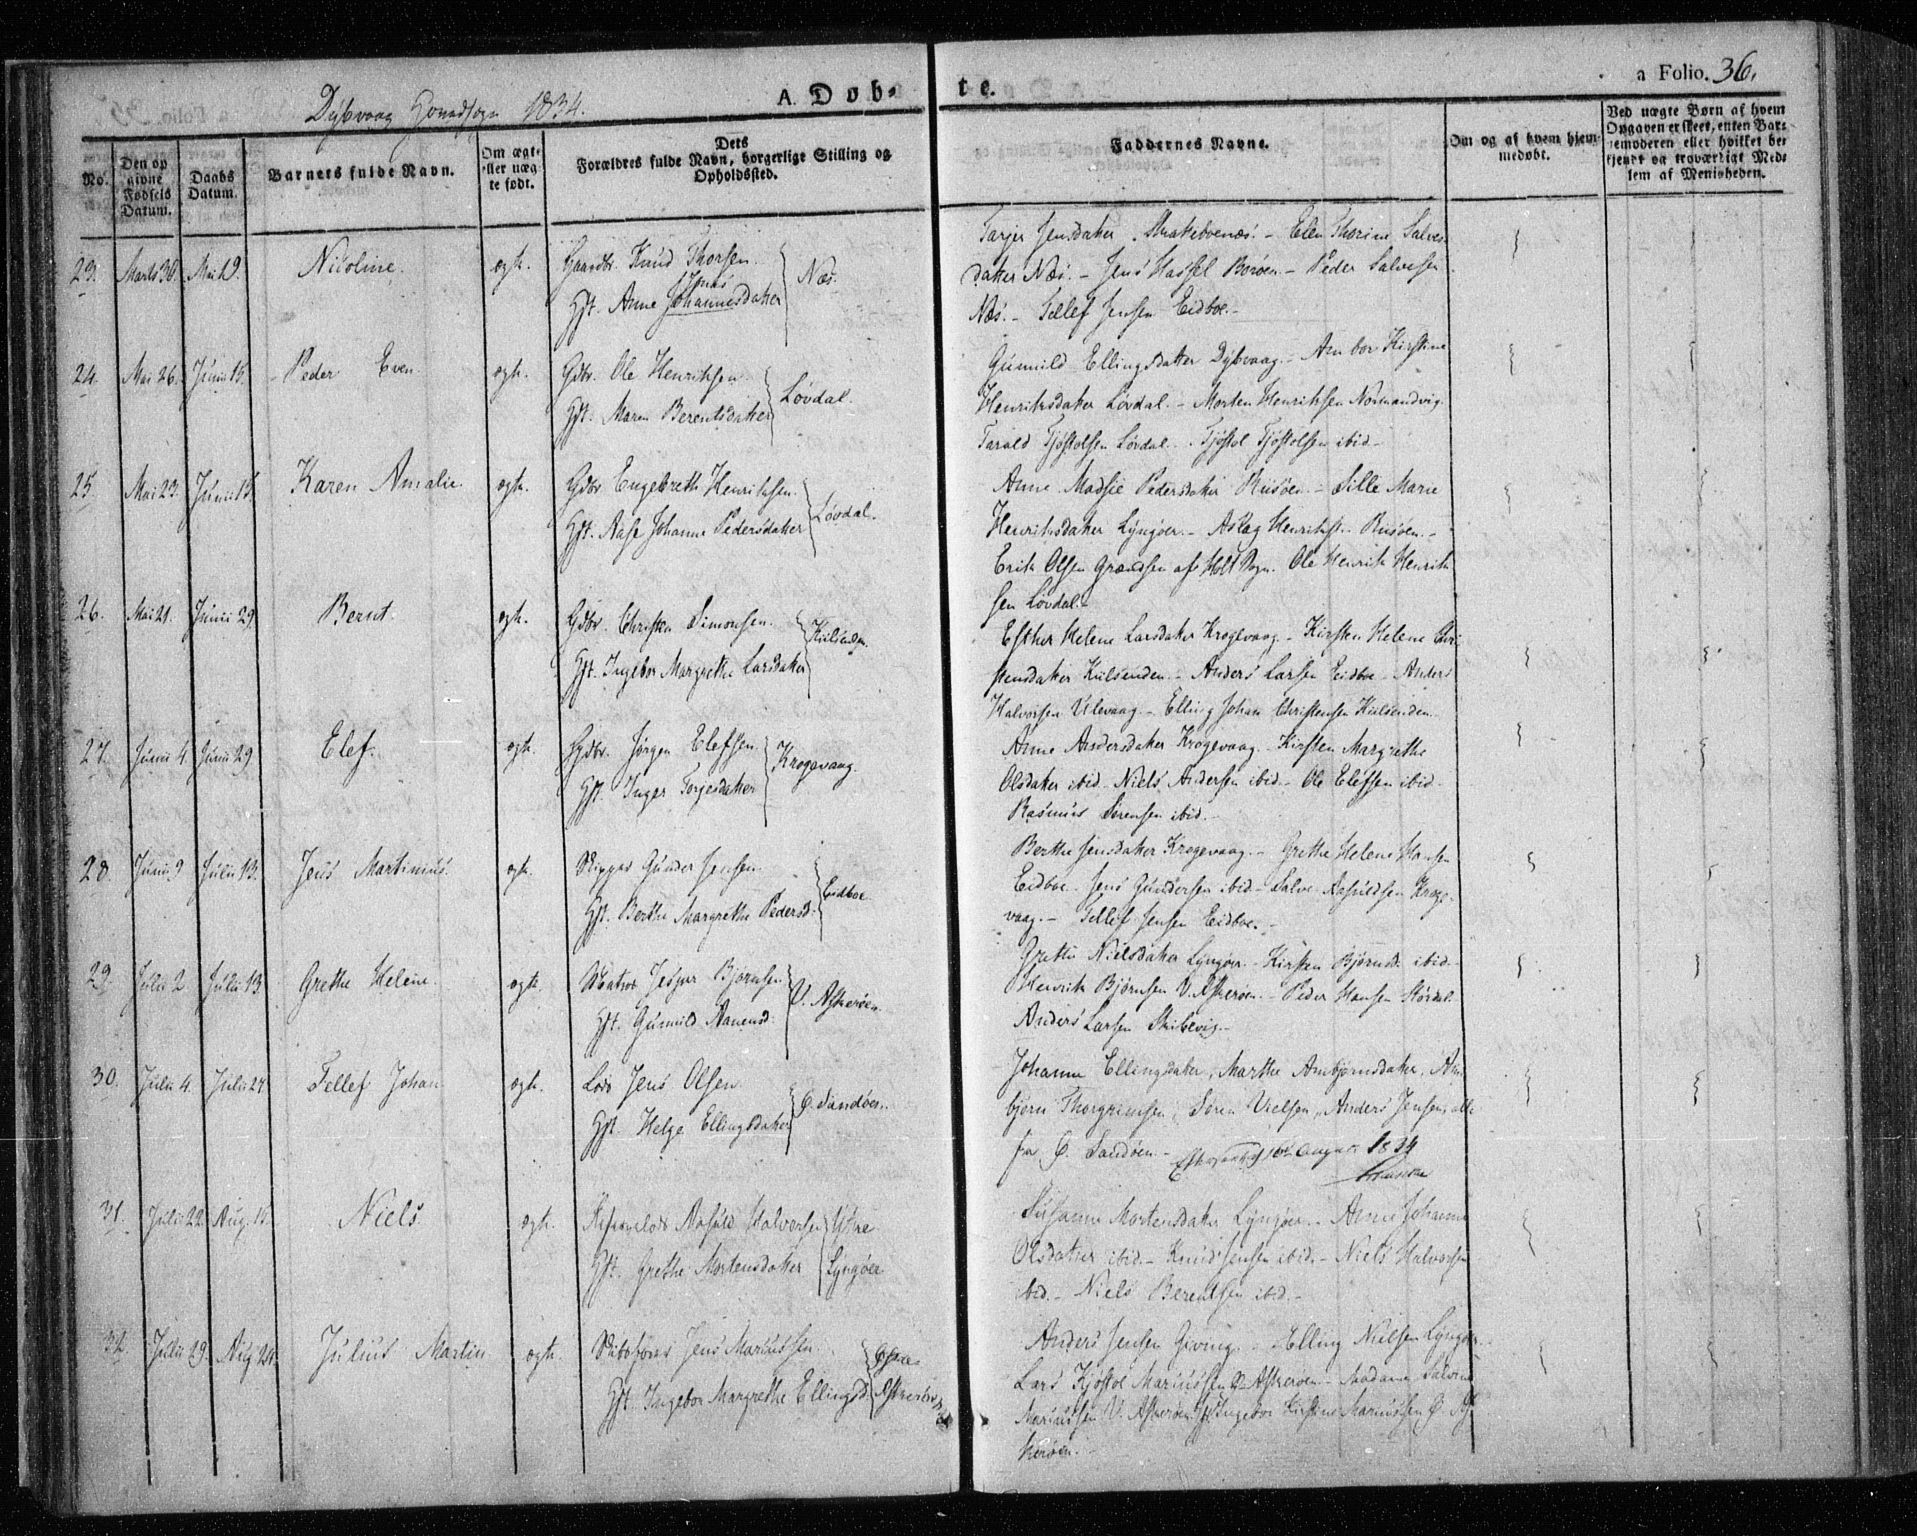 Dybvaag Hovedsogn 1834.
A. Døb-
te.
a Folio. 36.
No.
Den op
givne
Fødsels
Datum.
Daabs
Datum.
Barnets fulde Navn.
Om ægt-
eller uæg
te født.
Dets
Forældres fulde Navn, borgerlige Stilling og
Opholdssted.
Faddernes Navne.
Om og af hvem hjem-
medøbt.
Ved uægte Børn af hvem
Opgaven er skeet, enten Bar-
nemoderen eller hvilket be
kjendt og troværdigt Med
lem af Menigheden.
23. Marts 30. Mai 19. Nicoline. ægte. Gaardbr. Knud Thorsen
Jens
Hst. Anne Johannesdatter
Næs.
Tarjer Jensdatter - Elen Thorine Salves-
datter Næs. - Jens Hassel Borøen - Peder Salvesen
Næs. - Tellef Jensen Eidboe. -
24. Mai 26. Junii 15. Peder Even ægte. Gdbr. Ole Henriksen.
Hst. Maren Berentsdatter
Løvdal.
Gunnild Ellingsdatter Dybvaag. - Anbor Kirstine
Henriksdatter Løvdal. - Morten Henriksen Normandvig.
Tarald Tjøstolsen Løvdal. - Tjøstol Tjøstolsen ibid -
25. Mai 23. Junii 15. Karen Amalie. ægte. Gdbr. Engebreth Henriksen.
Hst. Aase Johanne Pedersdatter
Løvdal.
Anne Madsie Pedersdatter Risøen. - Sille Marie
Henriksdatter Lyngøer. - Aslag Henriks. Risøen. -
Erik Olsen Grændsen af Holt Sogn. Ole Henrik Henrik
sen Løvdal. -
26. Mai 21. Junii 29. Bernt. ægte. Gdbr. Christen Simonsen.
Hst. Ingebor Margrethe Larsdatter
Kiilsenden.
Esther Helene Larsdatter Krogevaag - Kirsten Helene Chri-
stensdatter Kiilsenden. - Anders Larsen Eidboe - Anders
Halvorsen Ulevaag. - Elling Johan Christensen Kiilsenden.
27. Junii 4. Junii 29 Elef. ægte. Gdbr. Jørgen Elefsen
Hst. Inger Terjesdatter
Krogevaag.
Anne Andersdatter Krogevaag. - Kirsten Margrethe
Olsdatter ibid - Niels Andersen ibid - Ole Elefsen ibid -
Rasmus Sørensen ibid. -
28. Junii 9 Julii 13. Jens Martinius. ægte. Gunder Jensen
Hst. Berthe Margrethe Pedersd.
Eidboe
Berthe Jensdatter Krogevaag. - Grethe Helene Hansen
Eidboe - Jens Gundersen ibid - Salve Aasuldsen Kroge-
vaag. - Tellef Jensen Eidboe. -
29. Julii 2 Julii 13. Grethe Helene. ægte. Matros Jesper Bjørnsen
Hst. Gunnild Aanensd.
V. Askerøen.
Grethe Nielsdatter Lyngøer - Kirsten Bjørnsd. ibid -
Henrik Bjørnsen V. Askerøen - Peder Hansen Størdal
Anders Larsen Skibevig. -
30. Julii 4. Julii 27. Tellef Johan ægte. Lods Jens Olsen
Hst. Helge Ellingsdatter
Ø. Sandøen.
Johanne Ellingsdatter, Marthe Ambjørnsdatter, Am-
bjørn Thorgrimsen, Søren Nielsen, Anders Jensen, alle
fra Ø. Sandøen. - 16de August 1834
31. Julii 22 Aug. 15. Niels. ægte. Aasuld Halvorsen
Hst. Grethe Mortensdatter
Ydre
Lyngøer
Susanne Mortensdatter Lyngøer. - Anne Johanne
Olsdatter ibid. - Knud Jensen ibid. - Niels Halvorsen
ibid. - Niels Berentsen ibid. -
32. Julii 29. Aug 24. Julius Martin ægte. Jens Mariussen
Hst. Ingebor Margrethe Ellingsd.
Østre
Askerøen
Anders Jensen Geving. - Elling Nielsen Lyngøer
Lars Kjøstol Mariussen Ø Askerøen - Madam Salvine
Mariussen V. Askerøen - Ingebor Kirstine Mariussen Ø. As-
kerøen. -